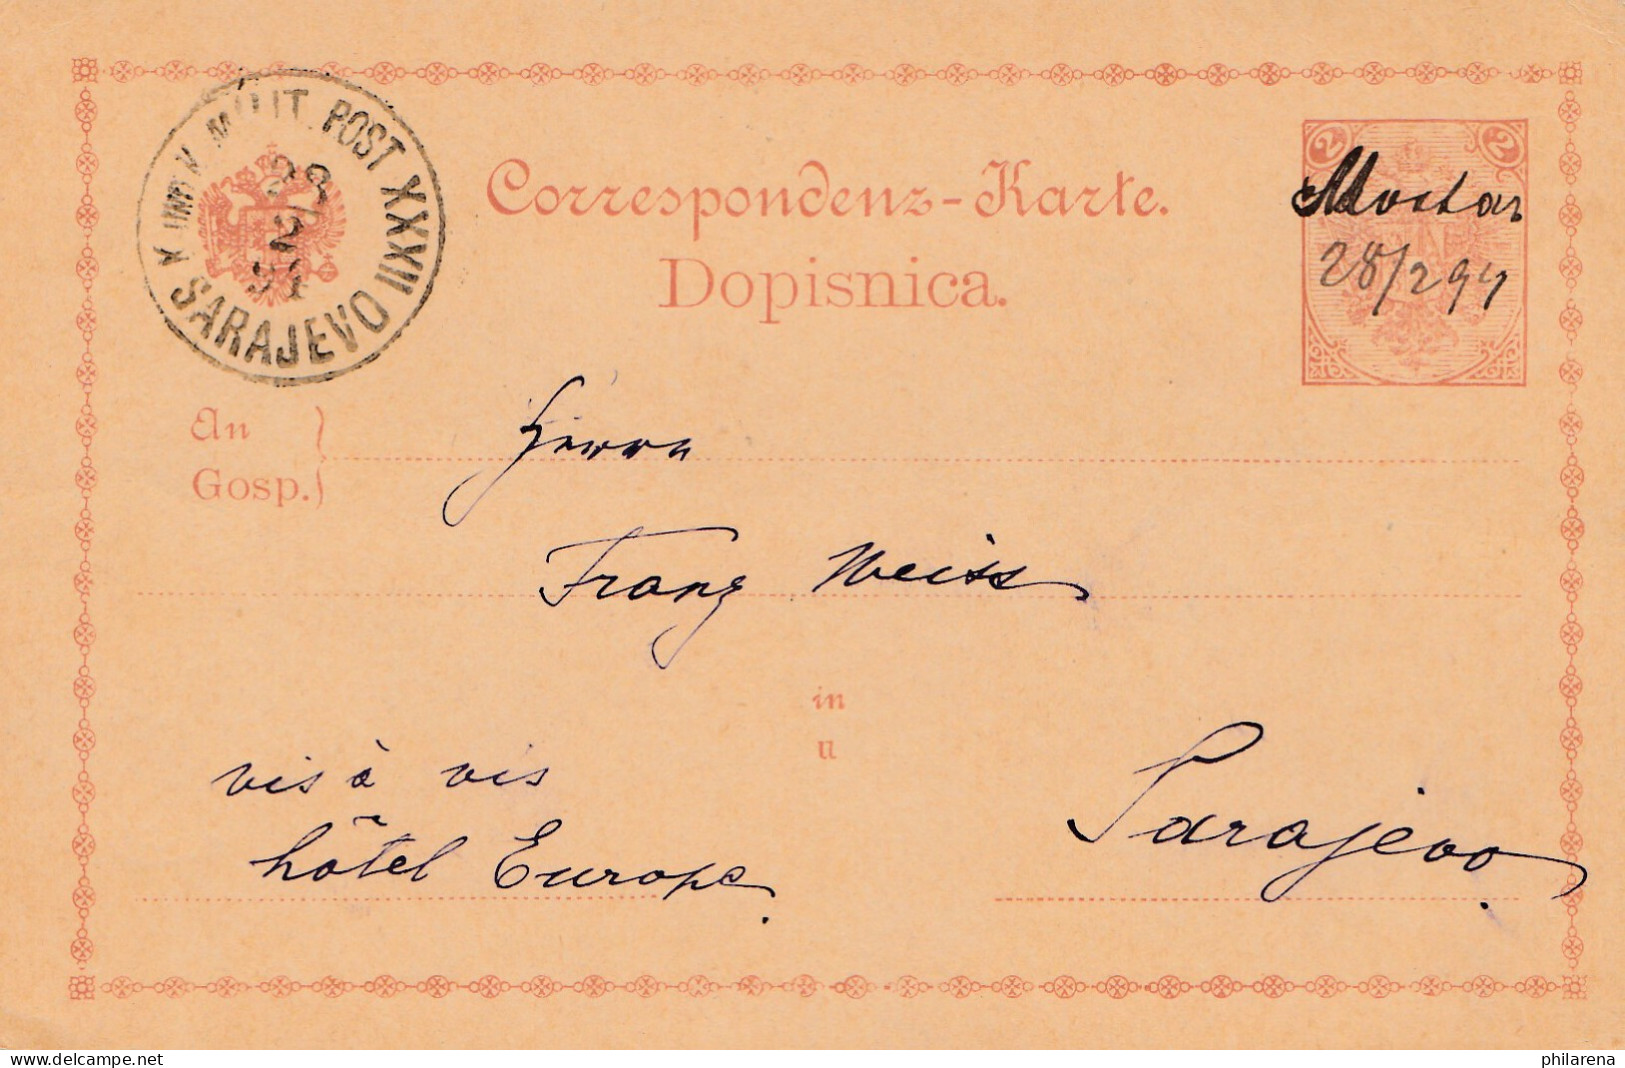 K. UND K. MILIT. POST XXXII
28
2
94
SARAJEVO
Correspondenz-Karte.
Dopisnica.
2 2
Mostar
28/2 94
An
Gosp.
Herrn
Franz Weiss
in
u
vis à vis
hôtel Europe.
Sarajevo.
www.delcampe.net
philarena